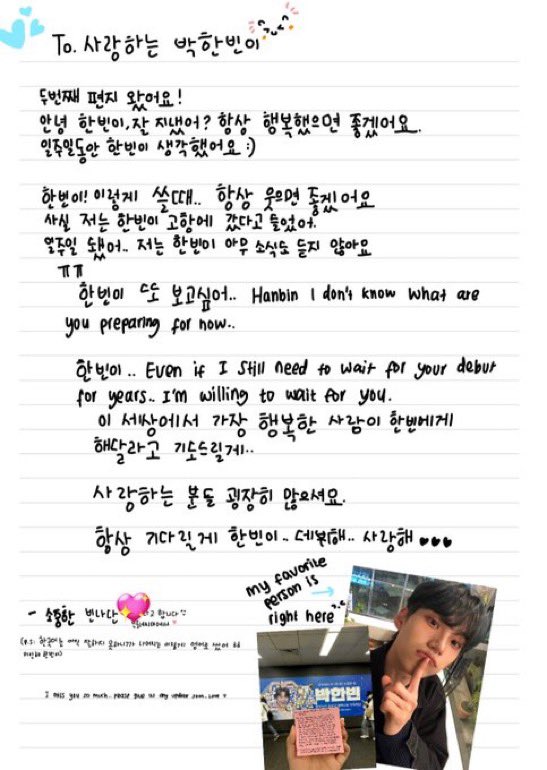 To. 사랑하는 박한빈이
두번째 편지 왔어요!
안녕 한빈이, 잘 지냈어? 항상 행복했으면 좋겠어요.
일주일동안 한빈이 생각했어요 :)
한빈이! 이렇게 쓸때.. 항상 웃으면 좋겠어요
사실 저는 한빈이 고향에 갔다고 들었어.
일주일 됐어.. 저는 한빈이 아무 소식도 듣지 않아요
ㅠㅠ
한빈이 또 보고싶어.. Hanbin I don't know what are
you preparing for now..
한빈이.. Even if I still need to wait for your debut
for years.. I'm willing to wait for you.
이 세상에서 가장 행복한 사람이 한빈에게
해달라고 기도드릴게..
사랑하는 분들 굉장히 많으셔요.
항상 기다릴게 한빈이.. 데뷔해.. 사랑해 ♥♥♥
my favorite
person is
right here
- 소중한 빈나단
I miss you so much. please give us any update soon. love ♡
박한빈